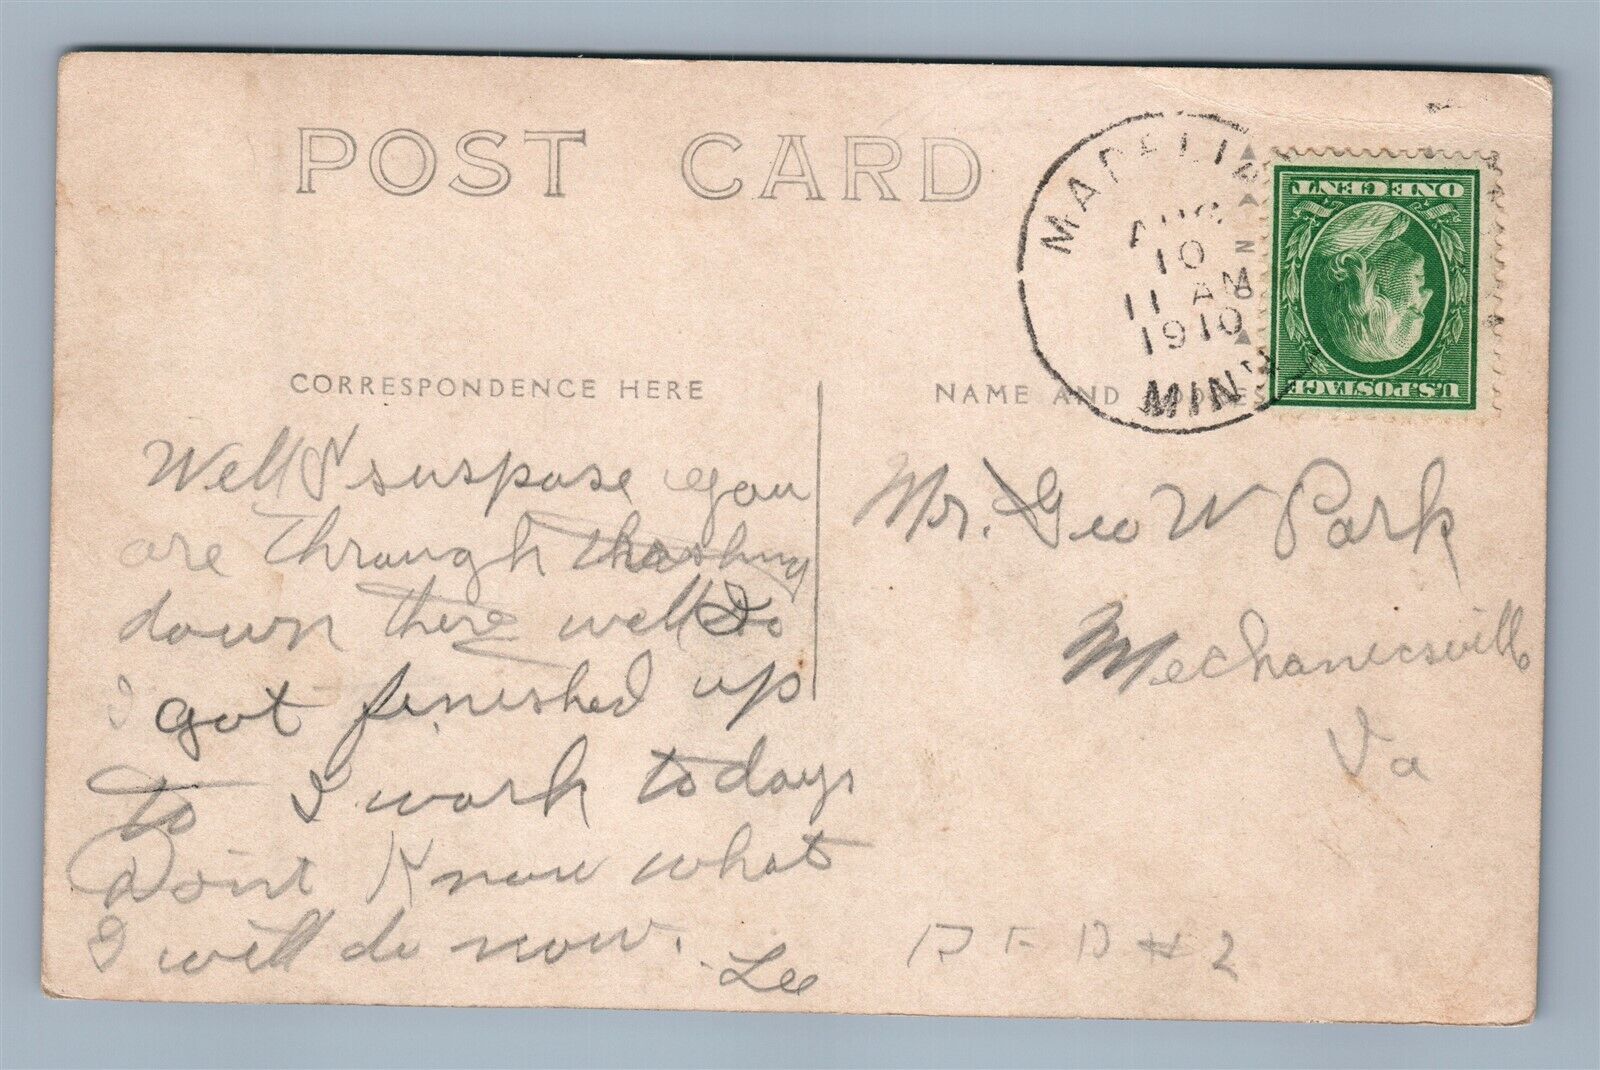 POST CARD
MADELI
AUG
10
11 AM
1910
MINN
ONE CENT
U.S. POSTAGE
CORRESPONDENCE HERE
NAME AND ADDRES
Well I suspose you
are through thrashing
down there well
I got finished up
to I work todays
Don't Know what
I will do now.
Lee
Mr. Geo W Park
Mechanicsville
Va
R F D # 2